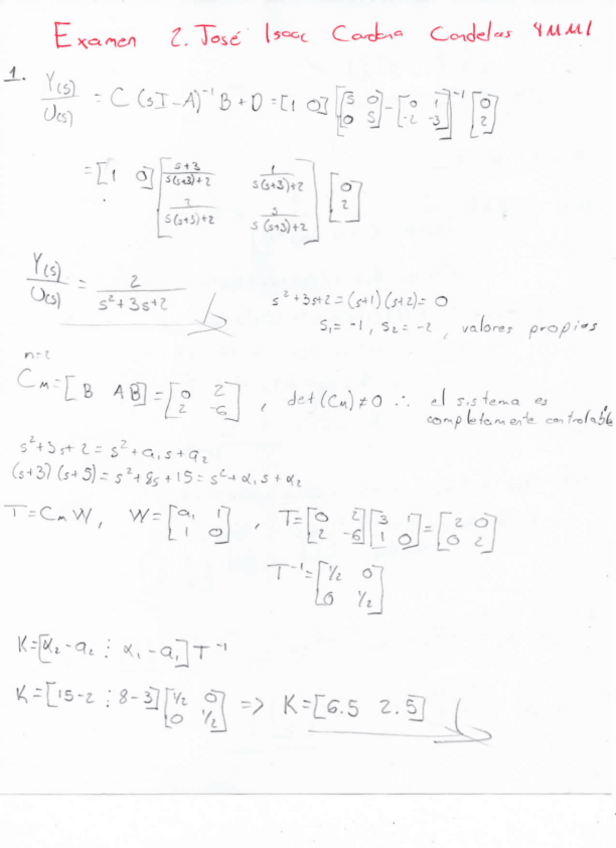 Examen 2. José Isaac Cardona Candelas 4MM1
1. Y(s)/U(s) = C (sI-A)⁻¹ B + D = [1 0] [[s 0; 0 s] - [0 1; -2 -3]]⁻¹ [0; 2]
= [1 0] [(s+3)/(s(s+3)+2) 1/(s(s+3)+2); 2/(s(s+3)+2) s/(s(s+3)+2)] [0; 2]
Y(s)/U(s) = 2/(s²+3s+2)
s²+3s+2 = (s+1)(s+2) = 0
s₁ = -1, s₂ = -2, valores propios
n=2
Cм = [B AB] = [0 2; 2 -6], det(Cм) ≠ 0 ∴ el sistema es
completamente controlable
s²+3s+2 = s²+a₁s+a₂
(s+3)(s+5) = s²+8s+15 = s²+α₁s+α₂
T = CмW, W = [a₁ 1; 1 0], T = [0 2; 2 -6][3 1; 1 0] = [2 0; 0 2]
T⁻¹ = [1/2 0; 0 1/2]
K = [α₂-a₂ ⋮ α₁-a₁] T⁻¹
K = [15-2 ⋮ 8-3] [1/2 0; 0 1/2] => K = [6.5 2.5]